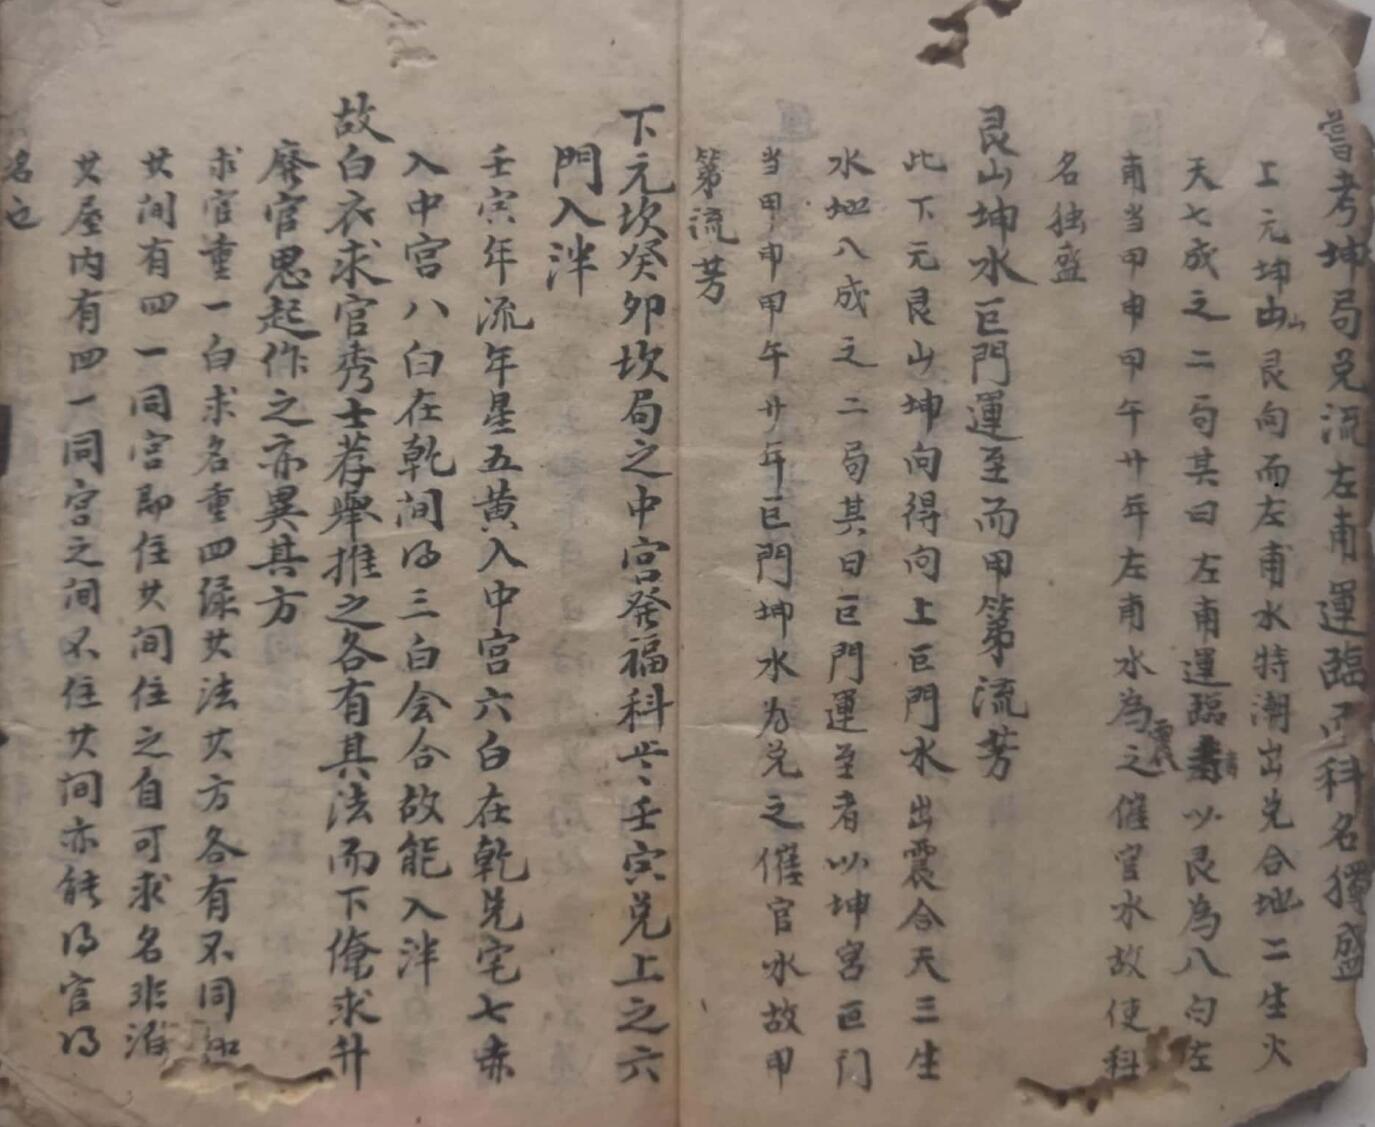 嘗考坤局兑流左甫運臨而科名獨盛
上元坤山艮向而左甫水特潮出兑合地二生火
天七成之二局其曰左甫運臨震以艮為八白左
甫當甲申甲午廿年左甫水為之催官水故使科
名独盛
艮山坤水巨門運至而甲第流芳
此下元艮山坤向得向上巨門水出震合天三生
水地八成之二局其曰巨門運至者以坤宮巨门
当甲申甲午廿年巨門坤水为兑之催官水故甲
第流芳
下元坎癸卯坎局之中宮發福科壬寅兑上之六
門入泮
壬寅年流年星五黄入中宮六白在乾兑宅七赤
入中宮八白在乾间得三白会合故能入泮
故白衣求官秀士荐舉推之各有其法而下僚求升
廢官思起作之亦異其方
求官重一白求名重四绿其法其方各有不同如
其间有四一同宫即住其间住之自可求名非泊
其屋内有四一同宫之间不住其间亦能得官得
名也